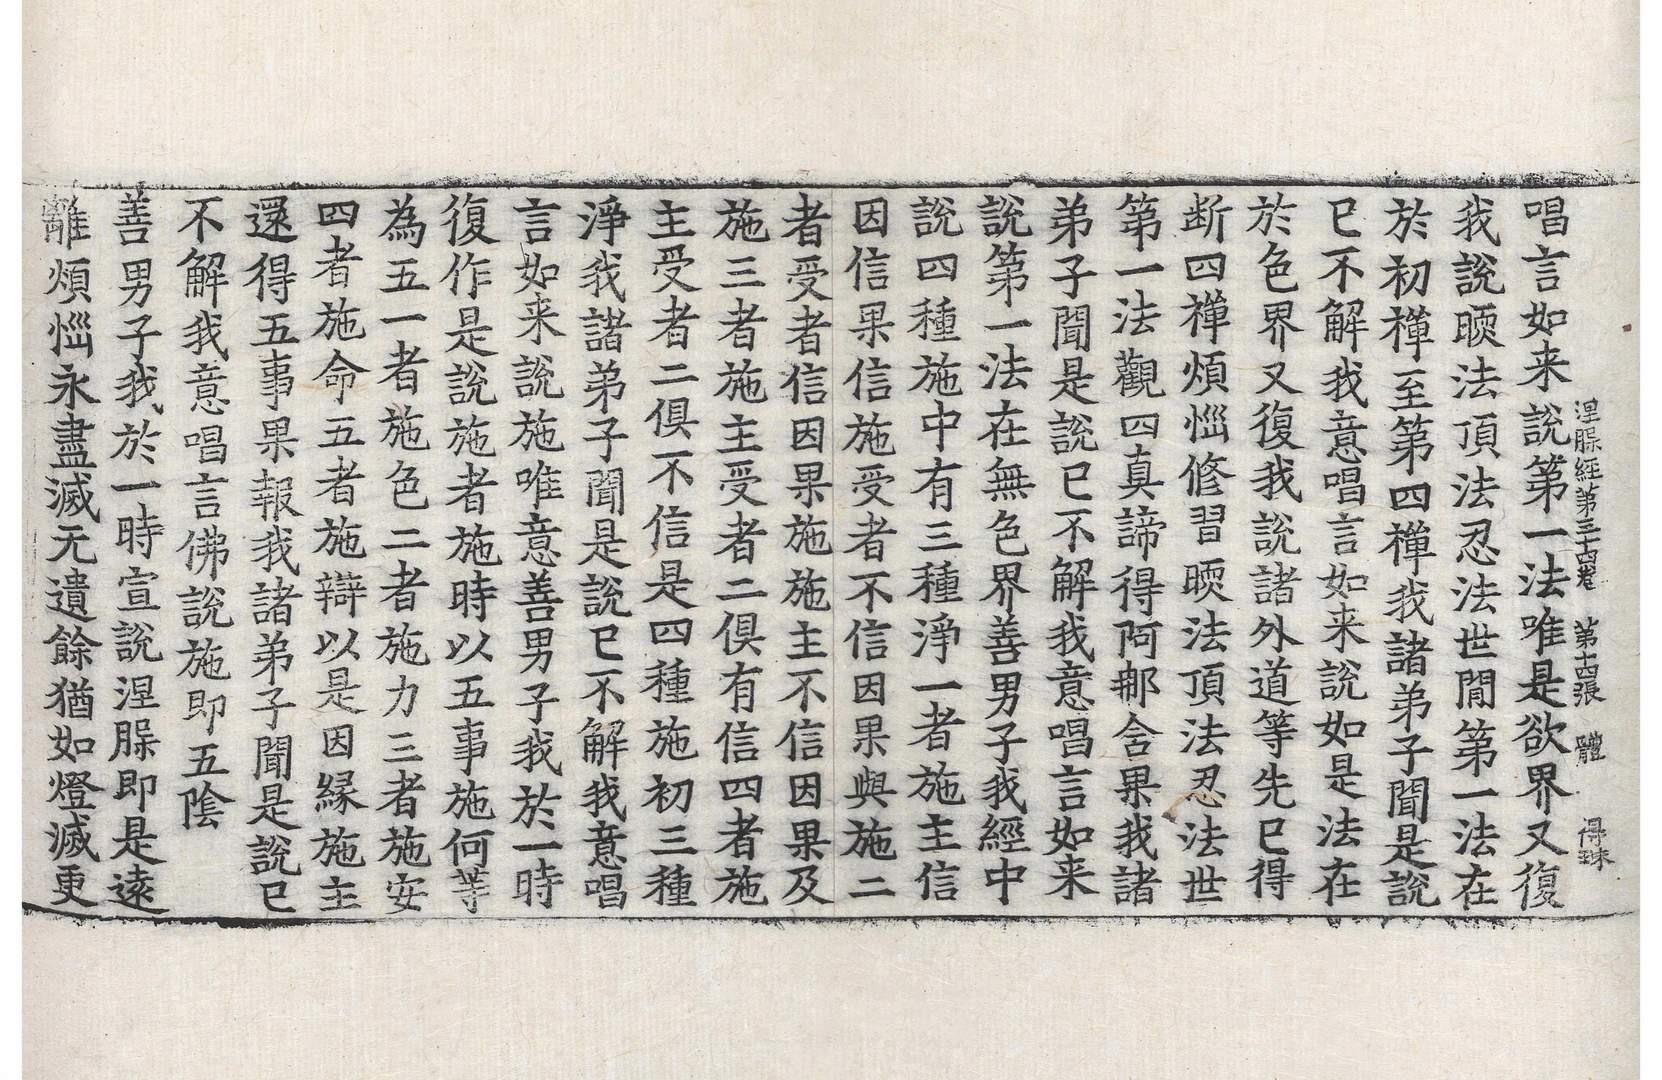 涅槃經第三十四卷 第十四張 體 得
唱言如来說第一法唯是欲界又復
我說㬉法頂法忍法世閒第一法在
於初禪至第四禪我諸弟子聞是說
已不解我意唱言如来說如是法在
於色界又復我說諸外道等先已得
断四禪煩惱修習㬉法頂法忍法世
第一法觀四真諦得阿那含果我諸
弟子聞是說已不解我意唱言如来
說第一法在無色界善男子我經中
說四種施中有三種淨一者施主信
因信果信施受者不信因果與施二
者受者信因果施施主不信因果及
施三者施主受者二俱有信四者施
主受者二俱不信是四種施初三種
淨我諸弟子聞是說已不解我意唱
言如来說施唯意善男子我於一時
復作是說施者施時以五事施何等
為五一者施色二者施力三者施安
四者施命五者施辯以是因緣施主
還得五事果報我諸弟子聞是說已
不解我意唱言佛說施即五陰
善男子我於一時宣說涅槃即是遠
離煩惱永盡滅无遺餘猶如燈滅更